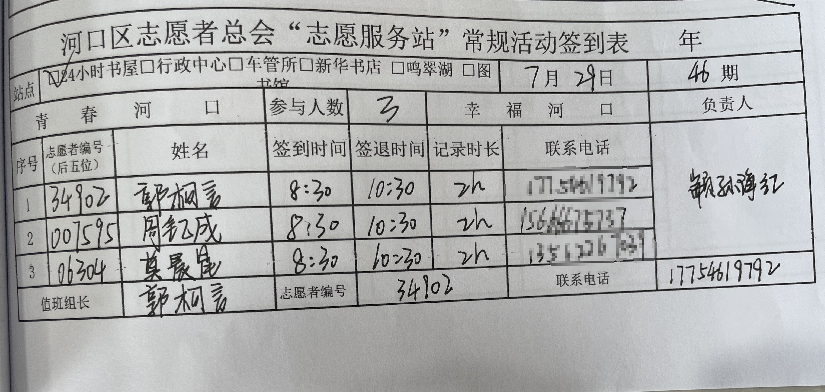 河口区志愿者总会“志愿服务站”常规活动签到表 年
站点 ☑24小时书屋□行政中心□车管所□新华书店 □鸣翠湖 □图书馆 7月29日 46期
青春河口 参与人数 3 幸福河口 负责人
序号 志愿者编号（后五位） 姓名 签到时间 签退时间 记录时长 联系电话
1 34902 郭柯言 8:30 10:30 2h
2 007595 周钇成 8:30 10:30 2h
3 06304 莫晨 8:30 10:30 2h
值班组长 郭柯言 志愿者编号 34902 联系电话 17754619792